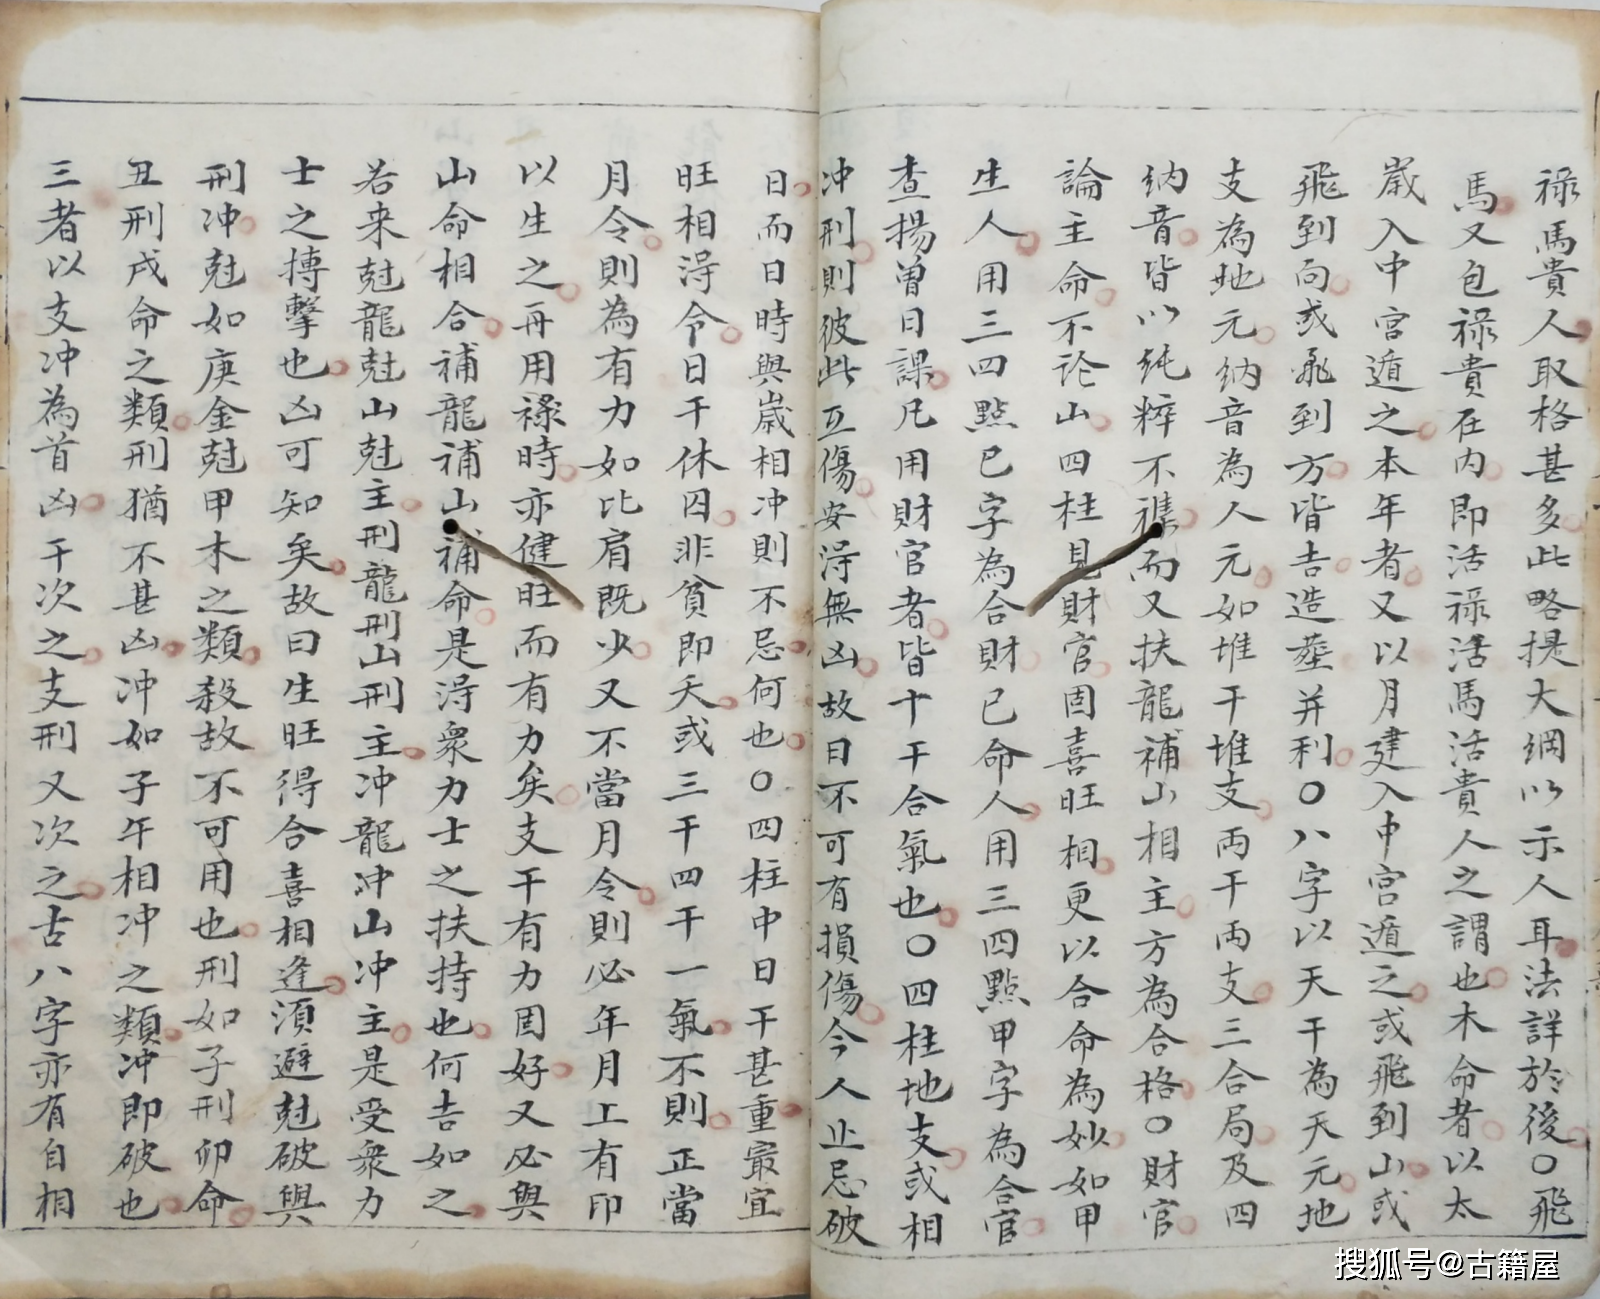 祿馬貴人取格甚多此略提大綱以示人耳法詳於後〇飛
馬又包祿貴在内即活祿活馬活貴人之謂也木命者以太
歲入中宮遁之本年者又以月建入中宮遁之或飛到山或
飛到向或飛到方皆吉造塟并利〇八字以天干為天元地
支為地元納音為人元如堆干堆支両干両支三合局及四
納音皆以純粹不襍而又扶龍補山相主方為合格〇財官
論主命不论山四柱見財官固喜旺相更以合命為妙如甲
生人用三四點己字為合財己命人用三四點甲字為合官
查揚曽日課凡用財官者皆十干合氣也〇四柱地支或相
冲刑則彼此互傷安淂無凶故曰不可有損傷今人止忌破
日而日時與歲相冲則不忌何也〇四柱中日干甚重最宜
旺相淂令日干休囚非貧即夭或三干四干一氣不則正當
月令則為有力如比肩既少又不當月令則必年月上有印
以生之再用祿時亦健旺而有力矣支干有力固好又必與
山命相合補龍補山補命是淂衆力士之扶持也何吉如之
若来尅龍尅山尅主刑龍刑山刑主冲龍冲山冲主是受衆力
士之搏擊也凶可知矣故曰生旺得合喜相逢須避尅破與
刑冲尅如庚金尅甲木之類殺故不可用也刑如子刑卯命
丑刑戌命之類刑猶不甚凶冲如子午相冲之類冲即破也
三者以支冲為首凶干次之支刑又次之古八字亦有自相
搜狐号@古籍屋